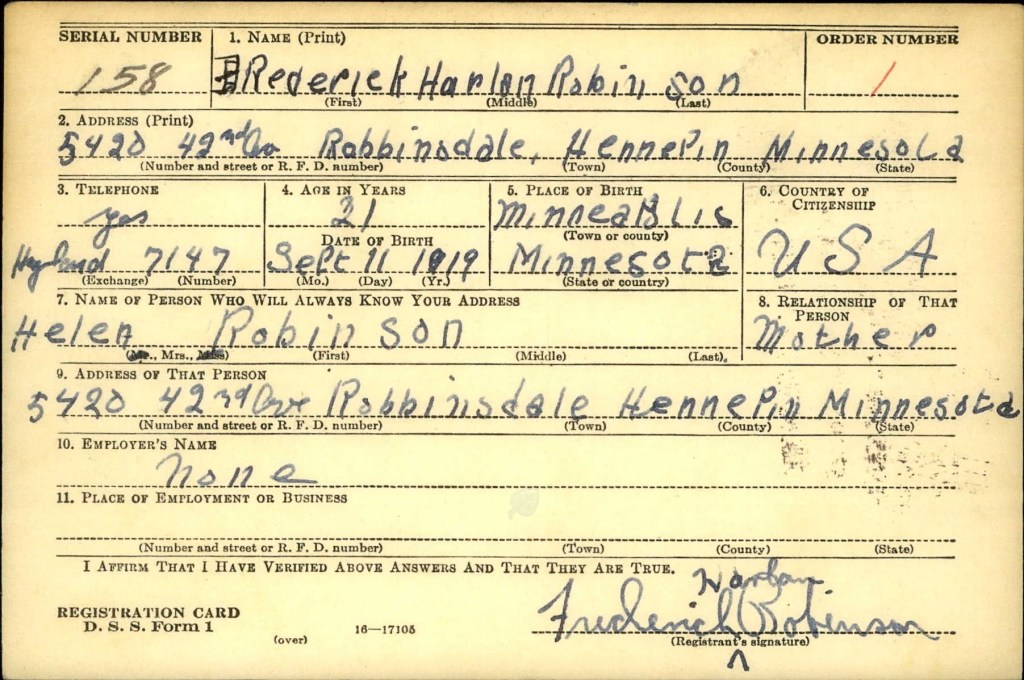 SERIAL NUMBER 1. NAME (Print) ORDER NUMBER
158 FRederick Harlan Robinson 1
(First) (Middle) (Last)
2. ADDRESS (Print)
5420 42nd Av Robbinsdale, Hennepin Minnesota
(Number and street or R. F. D. number) (Town) (County) (State)
3. TELEPHONE 4. AGE IN YEARS 5. PLACE OF BIRTH 6. COUNTRY OF CITIZENSHIP
yes 21 Minneaplis
DATE OF BIRTH (Town or county)
Hyland 7147 Sept 11 1919 Minnesota U S A
(Exchange) (Number) (Mo.) (Day) (Yr.) (State or country)
7. NAME OF PERSON WHO WILL ALWAYS KNOW YOUR ADDRESS 8. RELATIONSHIP OF THAT PERSON
Helen Robinson Mother
(Mr., Mrs., Miss) (First) (Middle) (Last)
9. ADDRESS OF THAT PERSON
5420 42nd Ave Robbinsdale Hennepin Minnesota
(Number and street or R. F. D. number) (Town) (County) (State)
10. EMPLOYER'S NAME
None
11. PLACE OF EMPLOYMENT OR BUSINESS
(Number and street or R. F. D. number) (Town) (County) (State)
I AFFIRM THAT I HAVE VERIFIED ABOVE ANSWERS AND THAT THEY ARE TRUE.
Harlan
REGISTRATION CARD
Frederick Robinson
D. S. S. Form 1 (over) 16—17105 (Registrant's signature)